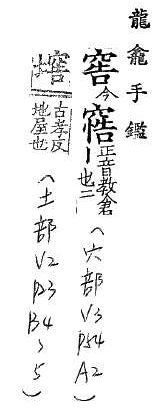 龍龕手鑑
窖今𥨪正音教倉丨也二(穴部V3P54A2)
古孝反地屋也(土部V2P23B4>5)